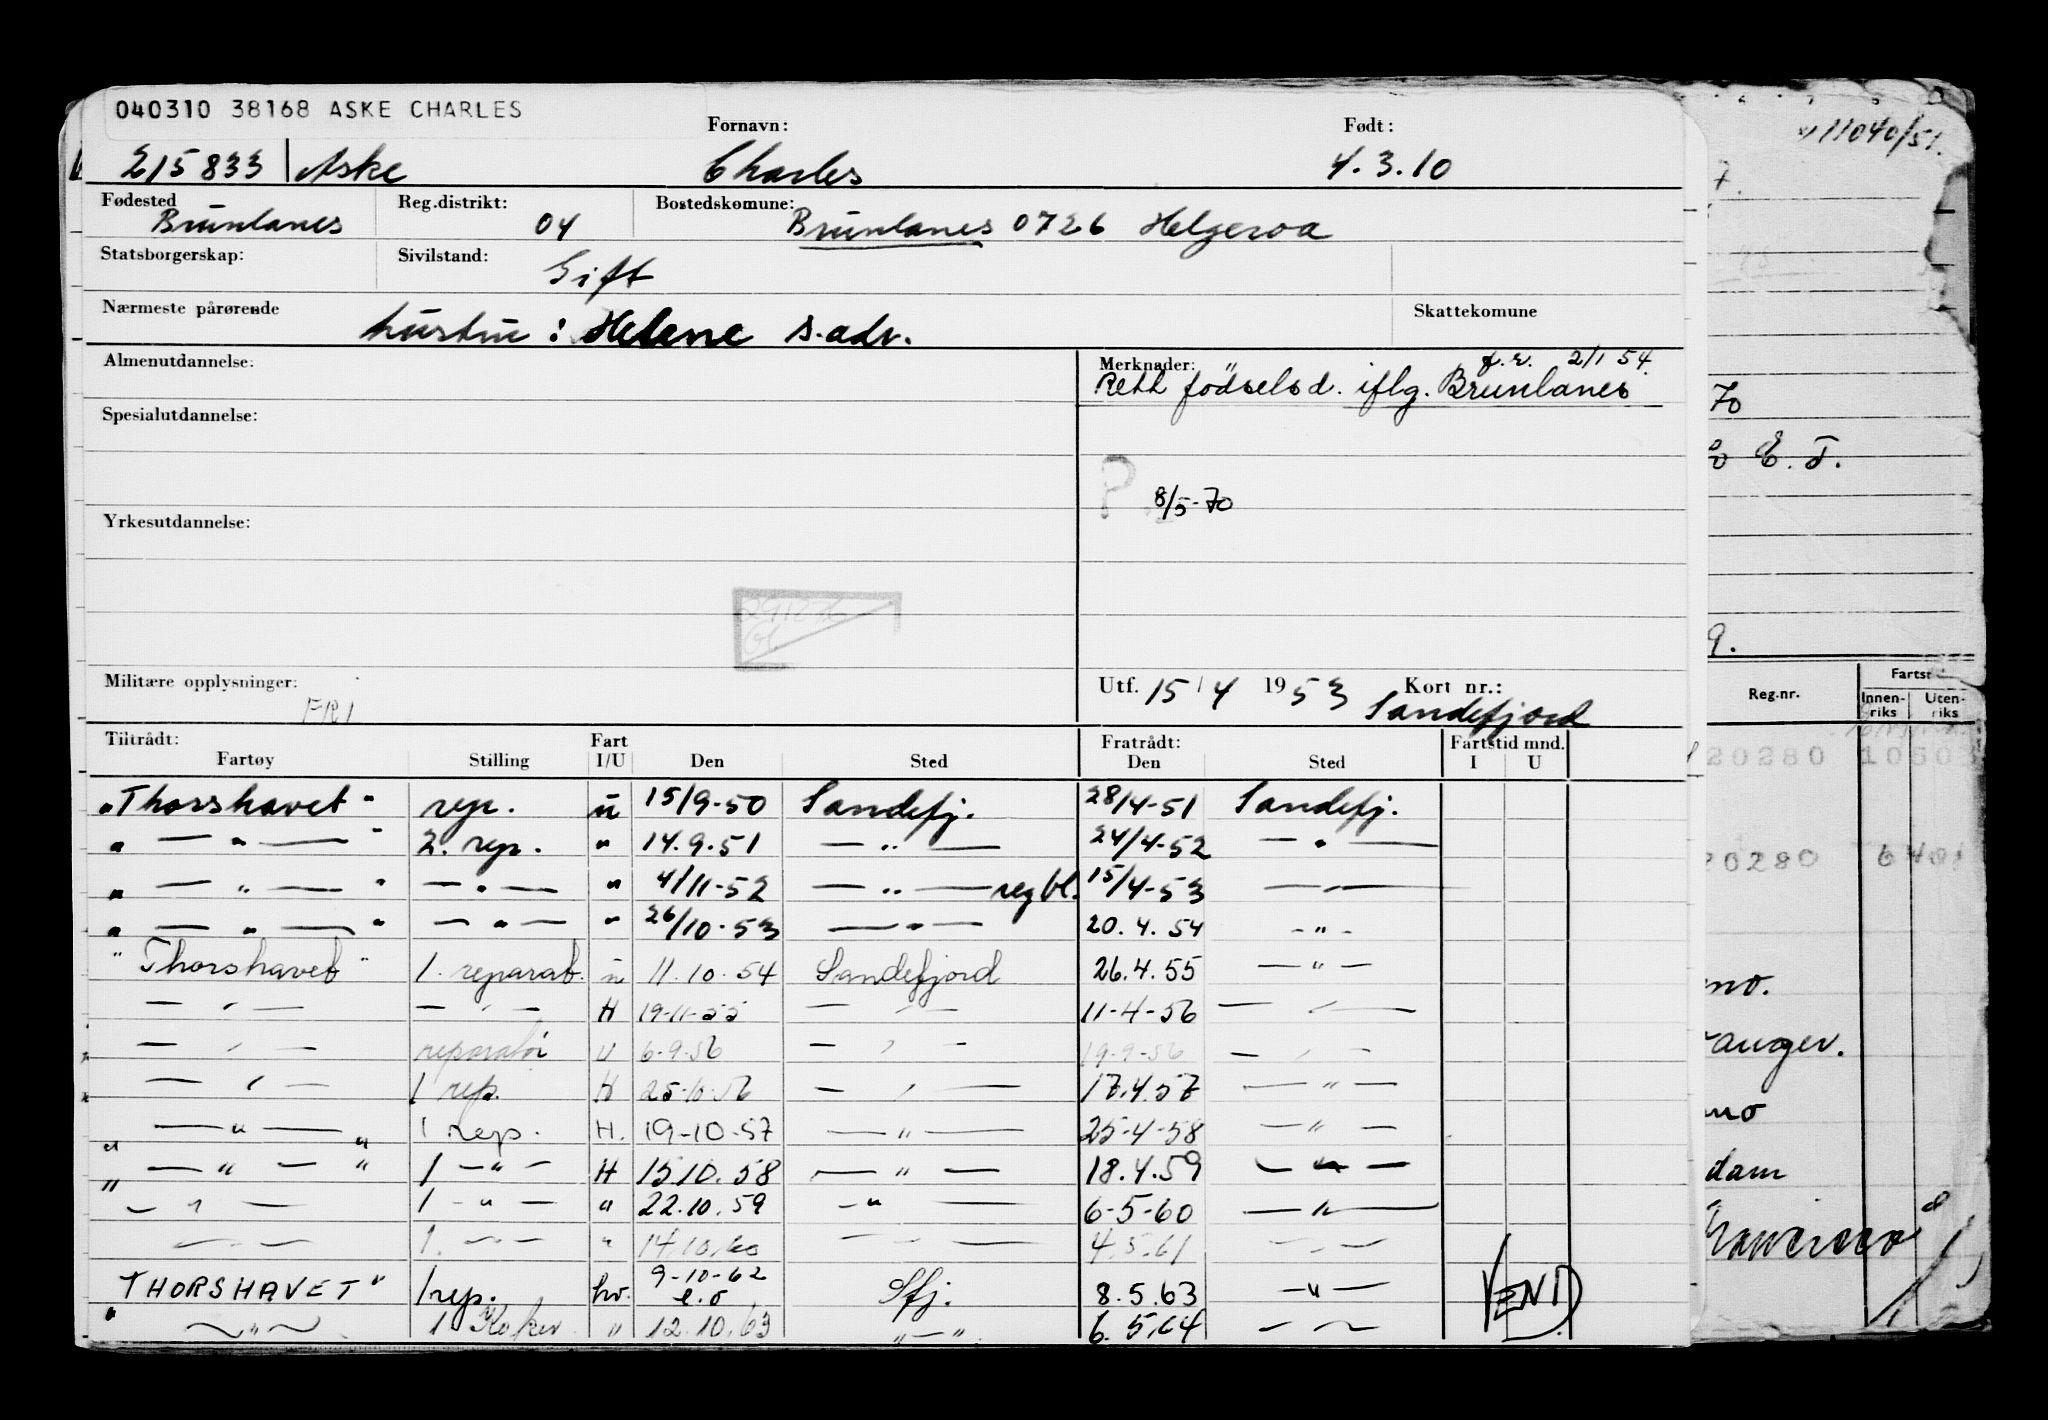 040310 38168 ASKE CHARLES
Fornavn: Født:
215833 Aske Charles 4.3.10
Fødested Reg.distrikt: Bostedskomune:
Brunlanes 04 Brunlanes 0726 Helgeroa
Statsborgerskap: Sivilstand: Gift
Nærmeste pårørende Skattekomune
hustru: Helene s.adr.
Almenutdannelse: Merknader: f.r. 2/1 54.
Rett fødselsd. iflg. Brunlanes
Spesialutdannelse:
? 8/5-70
Yrkesutdannelse:
Militære opplysninger: Utf. 15/4 1953 Kort nr.:
FRI Sandefjord
Tiltrådt: Fart Fratrådt: Fartstid mnd.
Fartøy Stilling I/U Den Sted Den Sted I U
"Thorshavet" rep. u 15/9-50 Sandefj. 28/4-51 Sandefj.
" — " — " 2. rep. " 14.9.51 — " — 24/4-52 — " —
" — " — " — " — " 4/11-52 — " — regbl. 15/4-53 — " —
" — " — " — " — " 26/10-53 — " — 20.4.54 - " -
"Thorshavet" 1. reparat. u 11.10.54 Sandefjord 26.4.55 — " —
— " — — " — H 19-11-55 — " — 11-4-56 — " —
— " — reparatør U 6-9-56 — " — 19-9-56 — " —
— " — 1 rep. H 25-10-56 — " — 17.4.57 — " —
" — " — " 1 rep. H. 19-10-57 — " — 25-4-58 — " —
" — " — " 1 — " — H 15.10.58 — " — 18.4.59 — " —
— " — 1 - " — " 22.10.59 — " — 6-5-60 — " —
— " — 1. — " — " 14.10.60 — " — 4.5.61 — " —
"THORSHAVET" 1 rep. hv. 9-10-62 Sfj. 8.5.63 — " —
e.o
" — " — 1 Koker " 12.10.63 " — " 6.5.64 — " —
VEND
11040/51.
7.
70
E. T.
9.
Reg.nr. Innen-riks Uten-riks
20280 10503
20280 6401
no.
anger.
mo
dam
Francisco